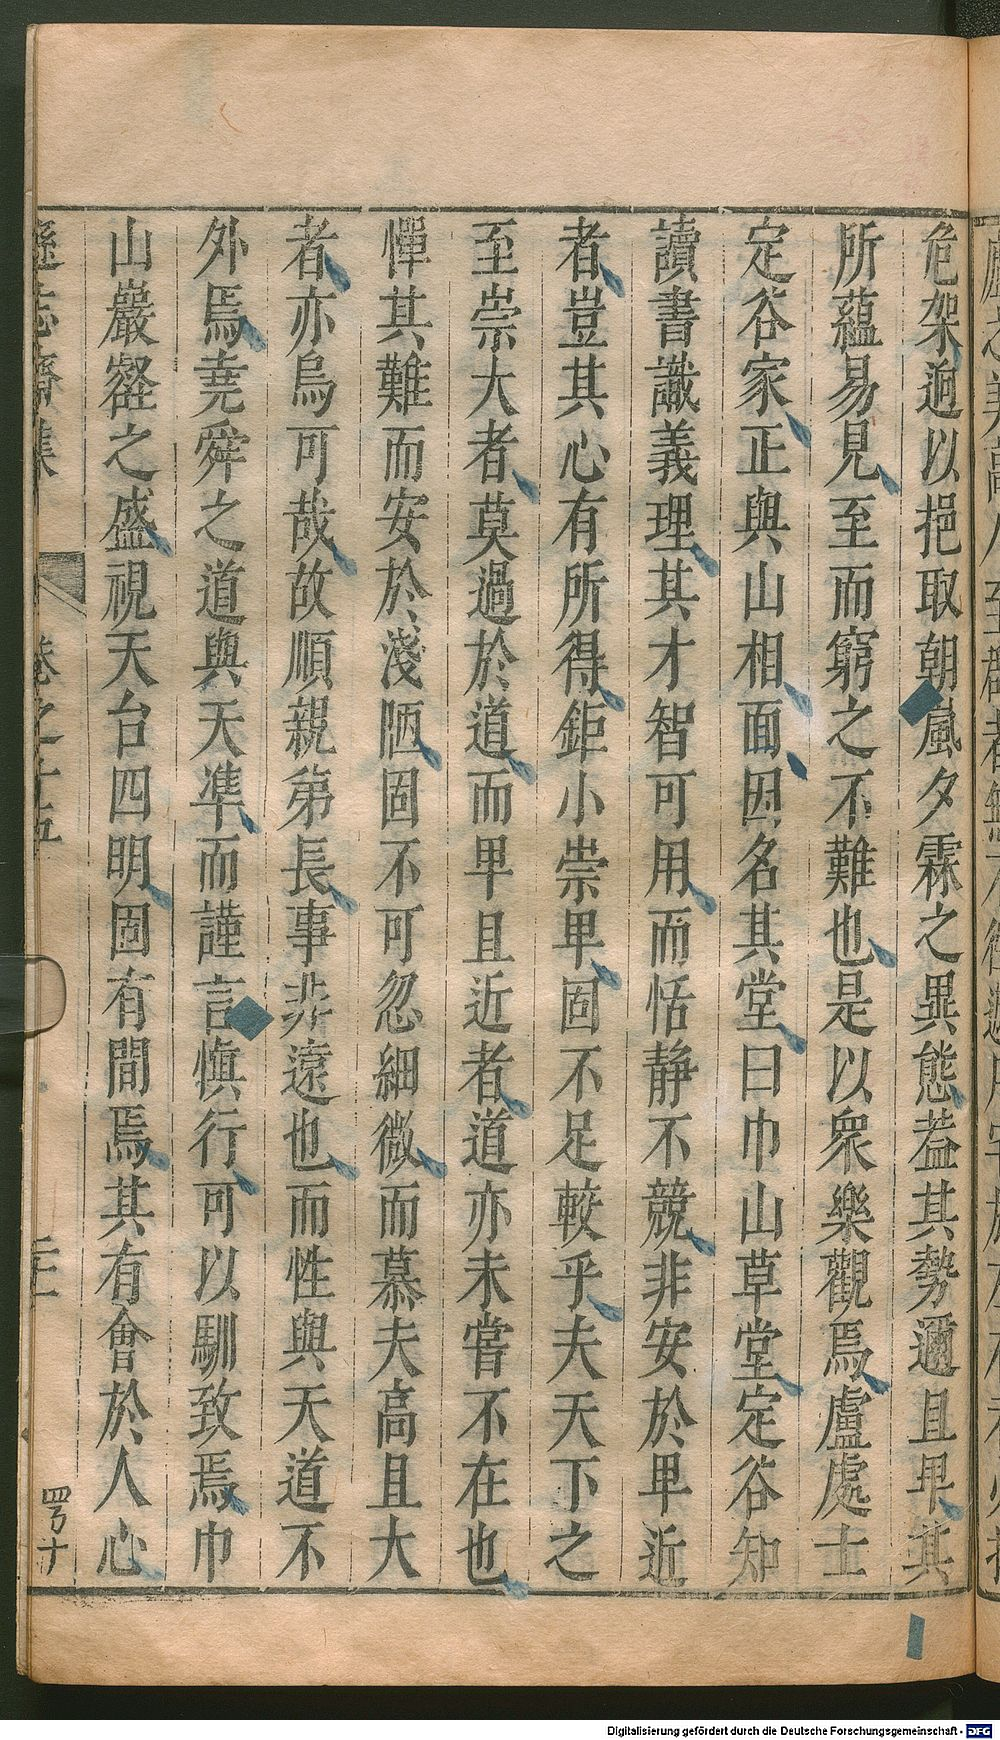 危架逈以挹取朝嵐夕霖之異態葢其勢邇且卑其
所蘊易見至而窮之不難也是以衆樂觀焉盧處士
定谷家正與山相面因名其堂曰巾山草堂定谷知
讀書識義理其才智可用而恬静不競非安於卑近
者豈其心有所得鉅小崇卑固不足較乎夫天下之
至崇大者莫過於道而卑且近者道亦未嘗不在也
憚其難而安於淺陋固不可忽細微而慕夫高且大
者亦烏可哉故順親弟長事非遠也而性與天道不
外焉堯舜之道與天凖而謹言慎行可以馴致焉巾
山巖壑之盛視天台四明固有間焉其有會於人心
遜志齋集 卷之十五 二十一
Digitalisierung gefördert durch die Deutsche Forschungsgemeinschaft - DFG